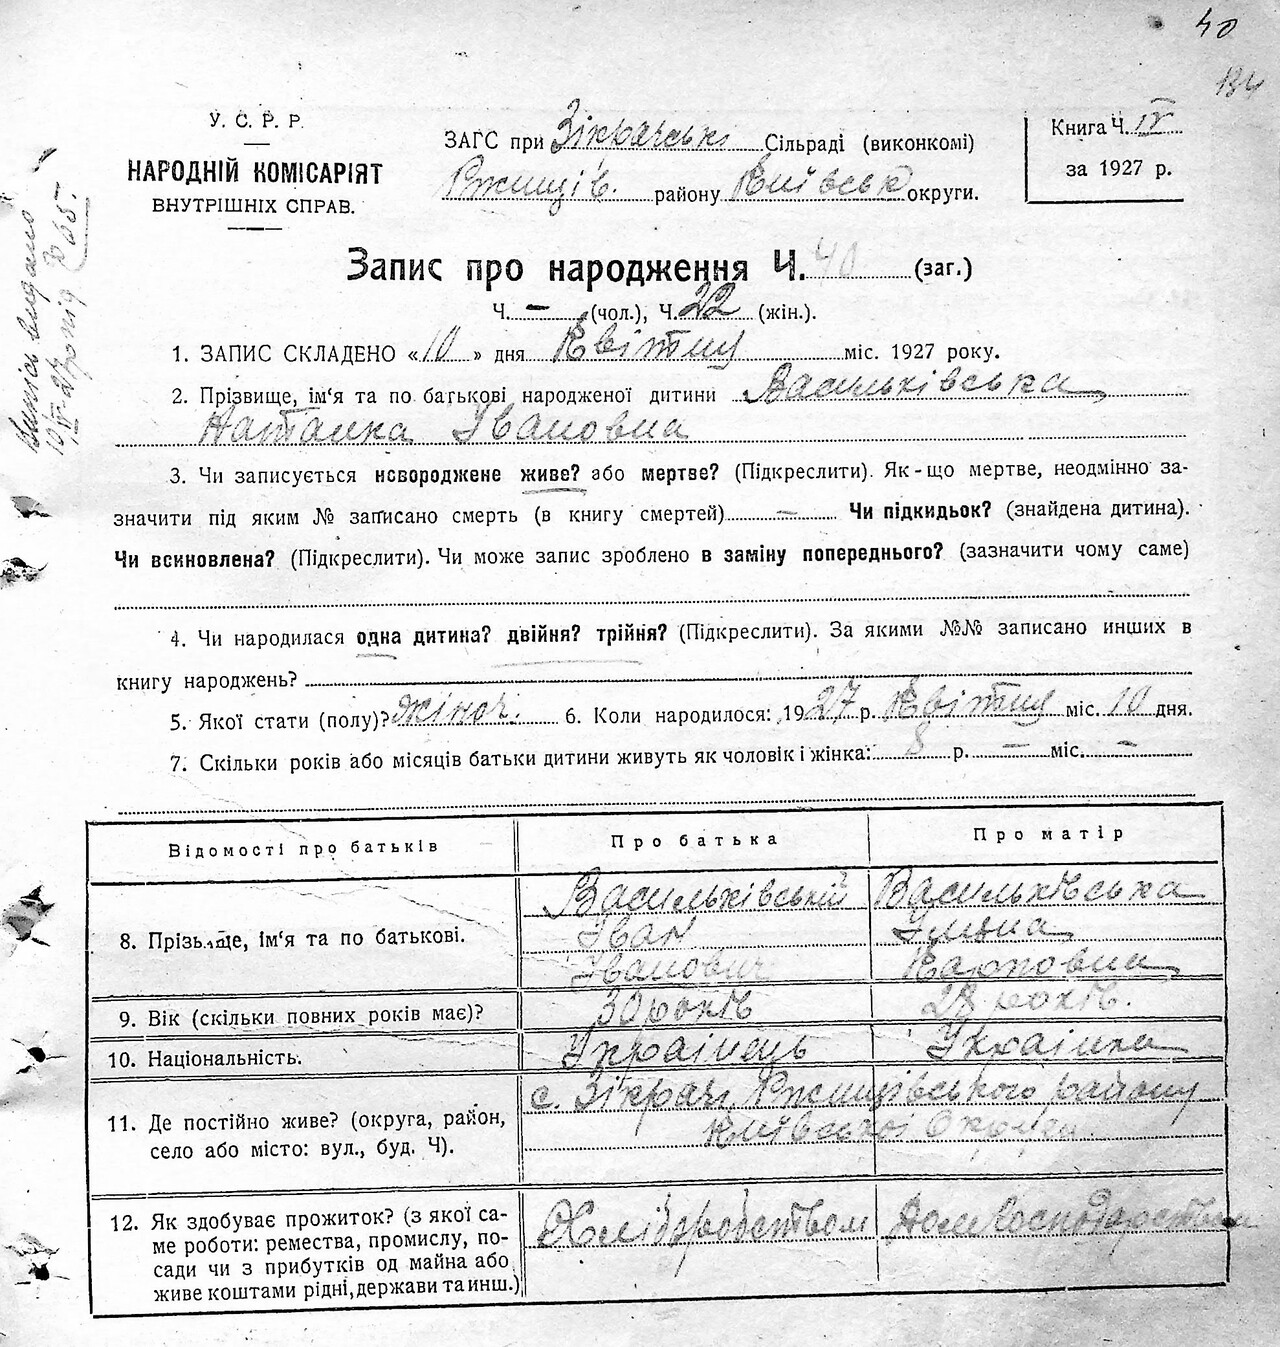 40
184
У. С. Р. Р.
НАРОДНІЙ КОМІСАРІЯТ
ВНУТРІШНІХ СПРАВ.
ЗАГС при Зікрачські Сільраді (виконкомі)
Ржищів. району Київськ округи.
Книга Ч. IV
за 1927 р.
Запис про народження Ч. 40 (заг.)
Ч. – (чол.), Ч. 22 (жін.).
1. ЗАПИС СКЛАДЕНО «10» дня Квітня міс. 1927 року.
2. Прізвище, ім'я та по батькові народженої дитини Васильківська
Наталка Івановна
3. Чи записується новороджене живе? або мертве? (Підкреслити). Як-що мертве, неодмінно за-
значити під яким № записано смерть (в книгу смертей) – Чи підкидьок? (знайдена дитина).
Чи всиновлена? (Підкреслити). Чи може запис зроблено в заміну попереднього? (зазначити чому саме)
4. Чи народилася одна дитина? двійня? трійня? (Підкреслити). За якими №№ записано инших в
книгу народжень?
5. Якої стати (полу)? жіноч. 6. Коли народилося: 1927 р. Квітня міс. 10 дня.
7. Скільки років або місяців батьки дитини живуть як чоловік і жінка: 8 р. – міс. –
Відомості про батьків
Про батька
Про матір
8. Прізвище, ім'я та по батькові.
Васильківський
Іван
Іванович
Васильківська
Уляна
Карповна
9. Вік (скільки повних років має)?
30 років
28 років.
10. Національність.
Українець
Українка
11. Де постійно живе? (округа, район,
село або місто: вул., буд. Ч).
с. Зікрачі Ржищівського району
Київської Округи
12. Як здобуває прожиток? (з якої са-
ме роботи: ремества, промислу, по-
сади чи з прибутків од майна або
живе коштами рідні, держави та инш.)
Хліборобством
Домгосподарством